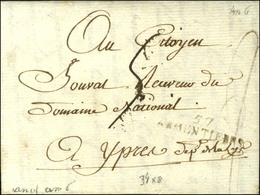 An 6
Au Citoyen
Jouval Receveur du
Domaine National
57
ARMENTIERES
A Ypres dept de la Lys
34x8